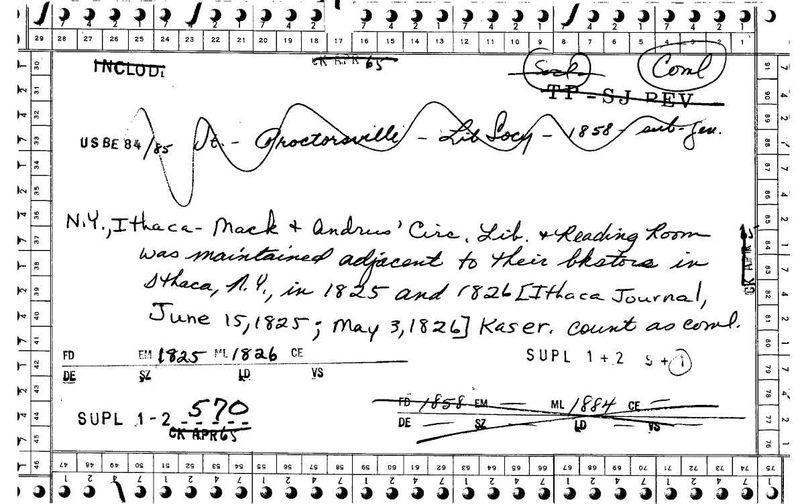 INCLOD.
CK APR 65
Socl
Coml
TP-SJ REV
USBE 84/85 Vt. - Proctorsville - Lib Socy - 1858 - sub-gen.
N.Y., Ithaca - Mack + Andrus' Circ. Lib. + Reading Room
was maintained adjacent to their bkstore in
Ithaca, N.Y., in 1825 and 1826 [Ithaca Journal,
June 15, 1825; May 3, 1826] Kaser. count as coml.
CK APR 65
FD EM 1825 ML 1826 CE
DE SZ LD VS
SUPL 1+2 S+1
SUPL 1-2 570
CK APR 65
FD 1858 EM — ML 1884 CE —
DE — SZ — LD — VS —